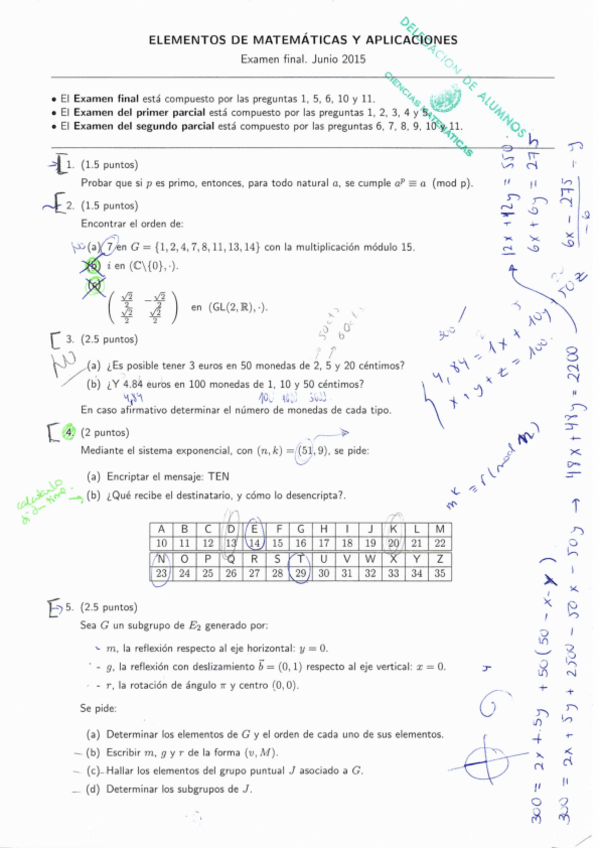 ELEMENTOS DE MATEMÁTICAS Y APLICACIONES
Examen final. Junio 2015
DELEGACION DE ALUMNOS
CIENCIAS MATEMÁTICAS
• El Examen final está compuesto por las preguntas 1, 5, 6, 10 y 11.
• El Examen del primer parcial está compuesto por las preguntas 1, 2, 3, 4 y 5.
• El Examen del segundo parcial está compuesto por las preguntas 6, 7, 8, 9, 10 y 11.
1. (1.5 puntos)
Probar que si p es primo, entonces, para todo natural a, se cumple a^p ≡ a (mod p).
2. (1.5 puntos)
Encontrar el orden de:
(a) 7 en G = {1, 2, 4, 7, 8, 11, 13, 14} con la multiplicación módulo 15.
(b) i en (ℂ\{0}, ·).
(c)
( √2/2 −√2/2
√2/2 √2/2 ) en (GL(2, ℝ), ·).
3. (2.5 puntos)
NO
(a) ¿Es posible tener 3 euros en 50 monedas de 2, 5 y 20 céntimos?
(b) ¿Y 4.84 euros en 100 monedas de 1, 10 y 50 céntimos?
4,84
En caso afirmativo determinar el número de monedas de cada tipo.
4. (2 puntos)
Mediante el sistema exponencial, con (n, k) = (51, 9), se pide:
(a) Encriptar el mensaje: TEN
(b) ¿Qué recibe el destinatario, y cómo lo desencripta?.
A B C D E F G H I J K L M
10 11 12 13 14 15 16 17 18 19 20 21 22
N O P Q R S T U V W X Y Z
23 24 25 26 27 28 29 30 31 32 33 34 35
5. (2.5 puntos)
Sea G un subgrupo de E₂ generado por:
- m, la reflexión respecto al eje horizontal: y = 0.
- g, la reflexión con deslizamiento b⃗ = (0, 1) respecto al eje vertical: x = 0.
- r, la rotación de ángulo π y centro (0, 0).
Se pide:
(a) Determinar los elementos de G y el orden de cada uno de sus elementos.
(b) Escribir m, g y r de la forma (v, M).
(c) Hallar los elementos del grupo puntual J asociado a G.
(d) Determinar los subgrupos de J.
12x + 42y = 550
6x + 6y = 275
6x - 275 = y
-6
300
4,84 = 1x + 10y + 50z
x + y + z = 100
m^k ≡ r (mod n)
300 = 2x + 5y + 50(50 - x - y)
300 = 2x + 5y + 2500 - 50x - 50y → 48x + 48y = 2200